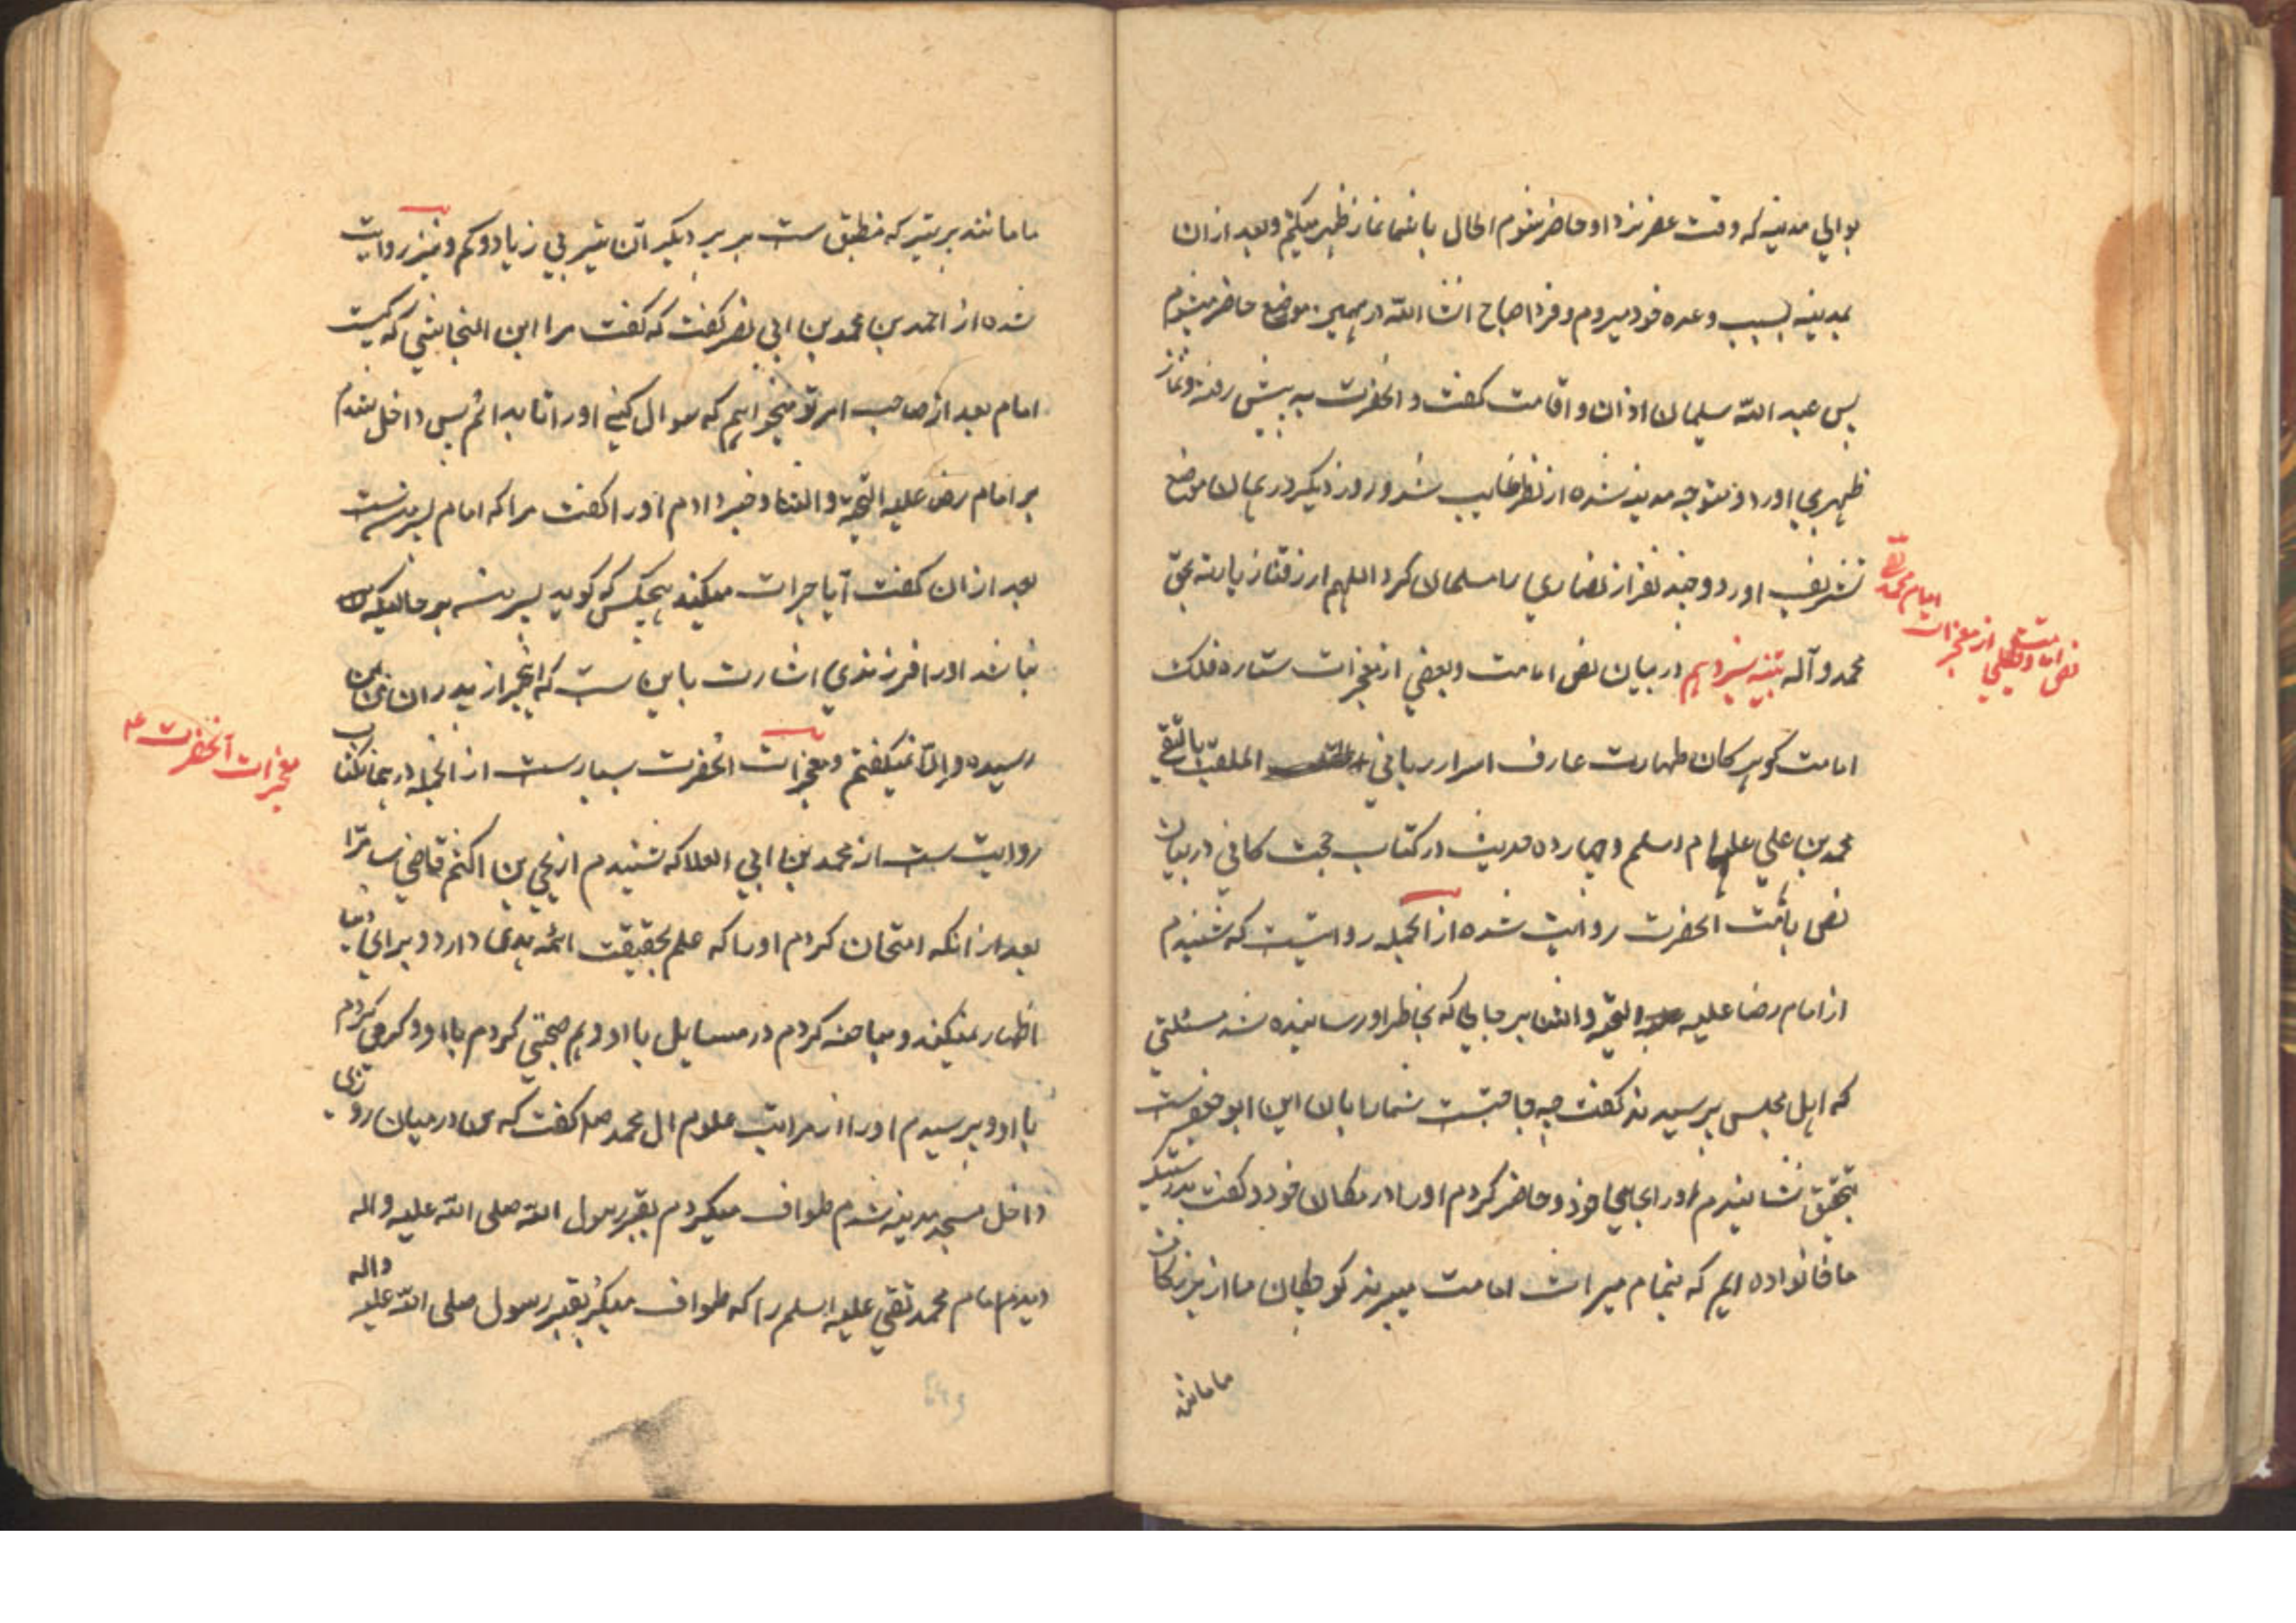 بوالی مدینه که وقت عصر نزد او حاضر شوم الحال با شما نماز ظهر میکنم و بعد از ان
بمدینه بسبب وعده خود میروم و فردا صباح انشا الله در همین موضع حاضر میشوم
پس عبد الله سلیمان اذان و اقامت گفت و انحضرت به پیش رفته و نماز
ظهر بجا اورد و متوجه مدینه شده از نظر غایب شد و روز دیگر در همان موضع
تشریف اورد و چند نفر از نصاری را مسلمان کرد اللهم ارزقنا زیارته بحق
محمد و آله تنبیه سیزدهم در بیان نص امامت و بعضی از معجزات ستاره فلک
امامت گوهر کان طهارت عارف اسرار ربانی الملقب بالتقی
محمد بن علی علیهما م اسلم و چهارده حدیث در کتاب حجت کافی در بیان
نص بامامت انحضرت روایت شده از الجمله روایتست که شنیدم
از امام رضا علیه التحیه و الثنا بر جایی که بخاطر او رسانیده شد مسئلتی
که اهل مجلس پرسیدند گفت چه حاجتست شما را بان این ابو جعفرست
بتحقیق نشانیدم اورا بجای خود و حاضر کردم اورا در مکان خود و گفت بدرستیکه
ما خانواده ایم که بتمام میراث امامت میبرند کودکان ما از بزرگان
ما مانند
نص امامت و قلیلی از معجزات امام محمد تقی
ما مانند پر تیر که منطبق ست بر پر دیگر ان تیر بی زیاد و کم و نیز روایت
شده از احمد بن محمد بن ابی نصر گفت که گفت مرا ابن النجاشی که کیست
امام بعد از صاحب امر تو میخواهم که سوال کنی اورا تا بدانم پس داخل شدم
بر امام رضا علیه التحیة و الثنا و خبر دادم اورا گفت مرا که امام پسر منست
بعد از ان گفت آیا جرات میکند هیچکس که گوید پسر منه بر حالیکه
نباشد اورا فرزندی اشارت باین ست که اینخبر از پدران من بمن
رسیده و الا نمیگفتم و معجزات انحضرت بسیارست از الجمله در همان کتاب
روایت ست از محمد بن ابی العلا که شنیدم از یحیی بن اکثم قاضی سامرا
بعد از انکه امتحان کردم اورا که علم بحقیقت ائمه هدی دارد و برای دنیا
اظهار نمیکند و مباحثه کردم در مسایل با او و هم صحبتی کردم با او و کرمی کردم
با او و پرسیدم اورا از مراتب علوم ال محمد صا گفت که من در میان روزی
داخل مسجد مدینه شدم طواف میکردم بقبر رسول الله صلی الله علیه واله
دیدم امام محمد تقی علیه اسلم را که طواف میکرد بقبر رسول صلی الله علیه واله
معجزات آنحضرت ع